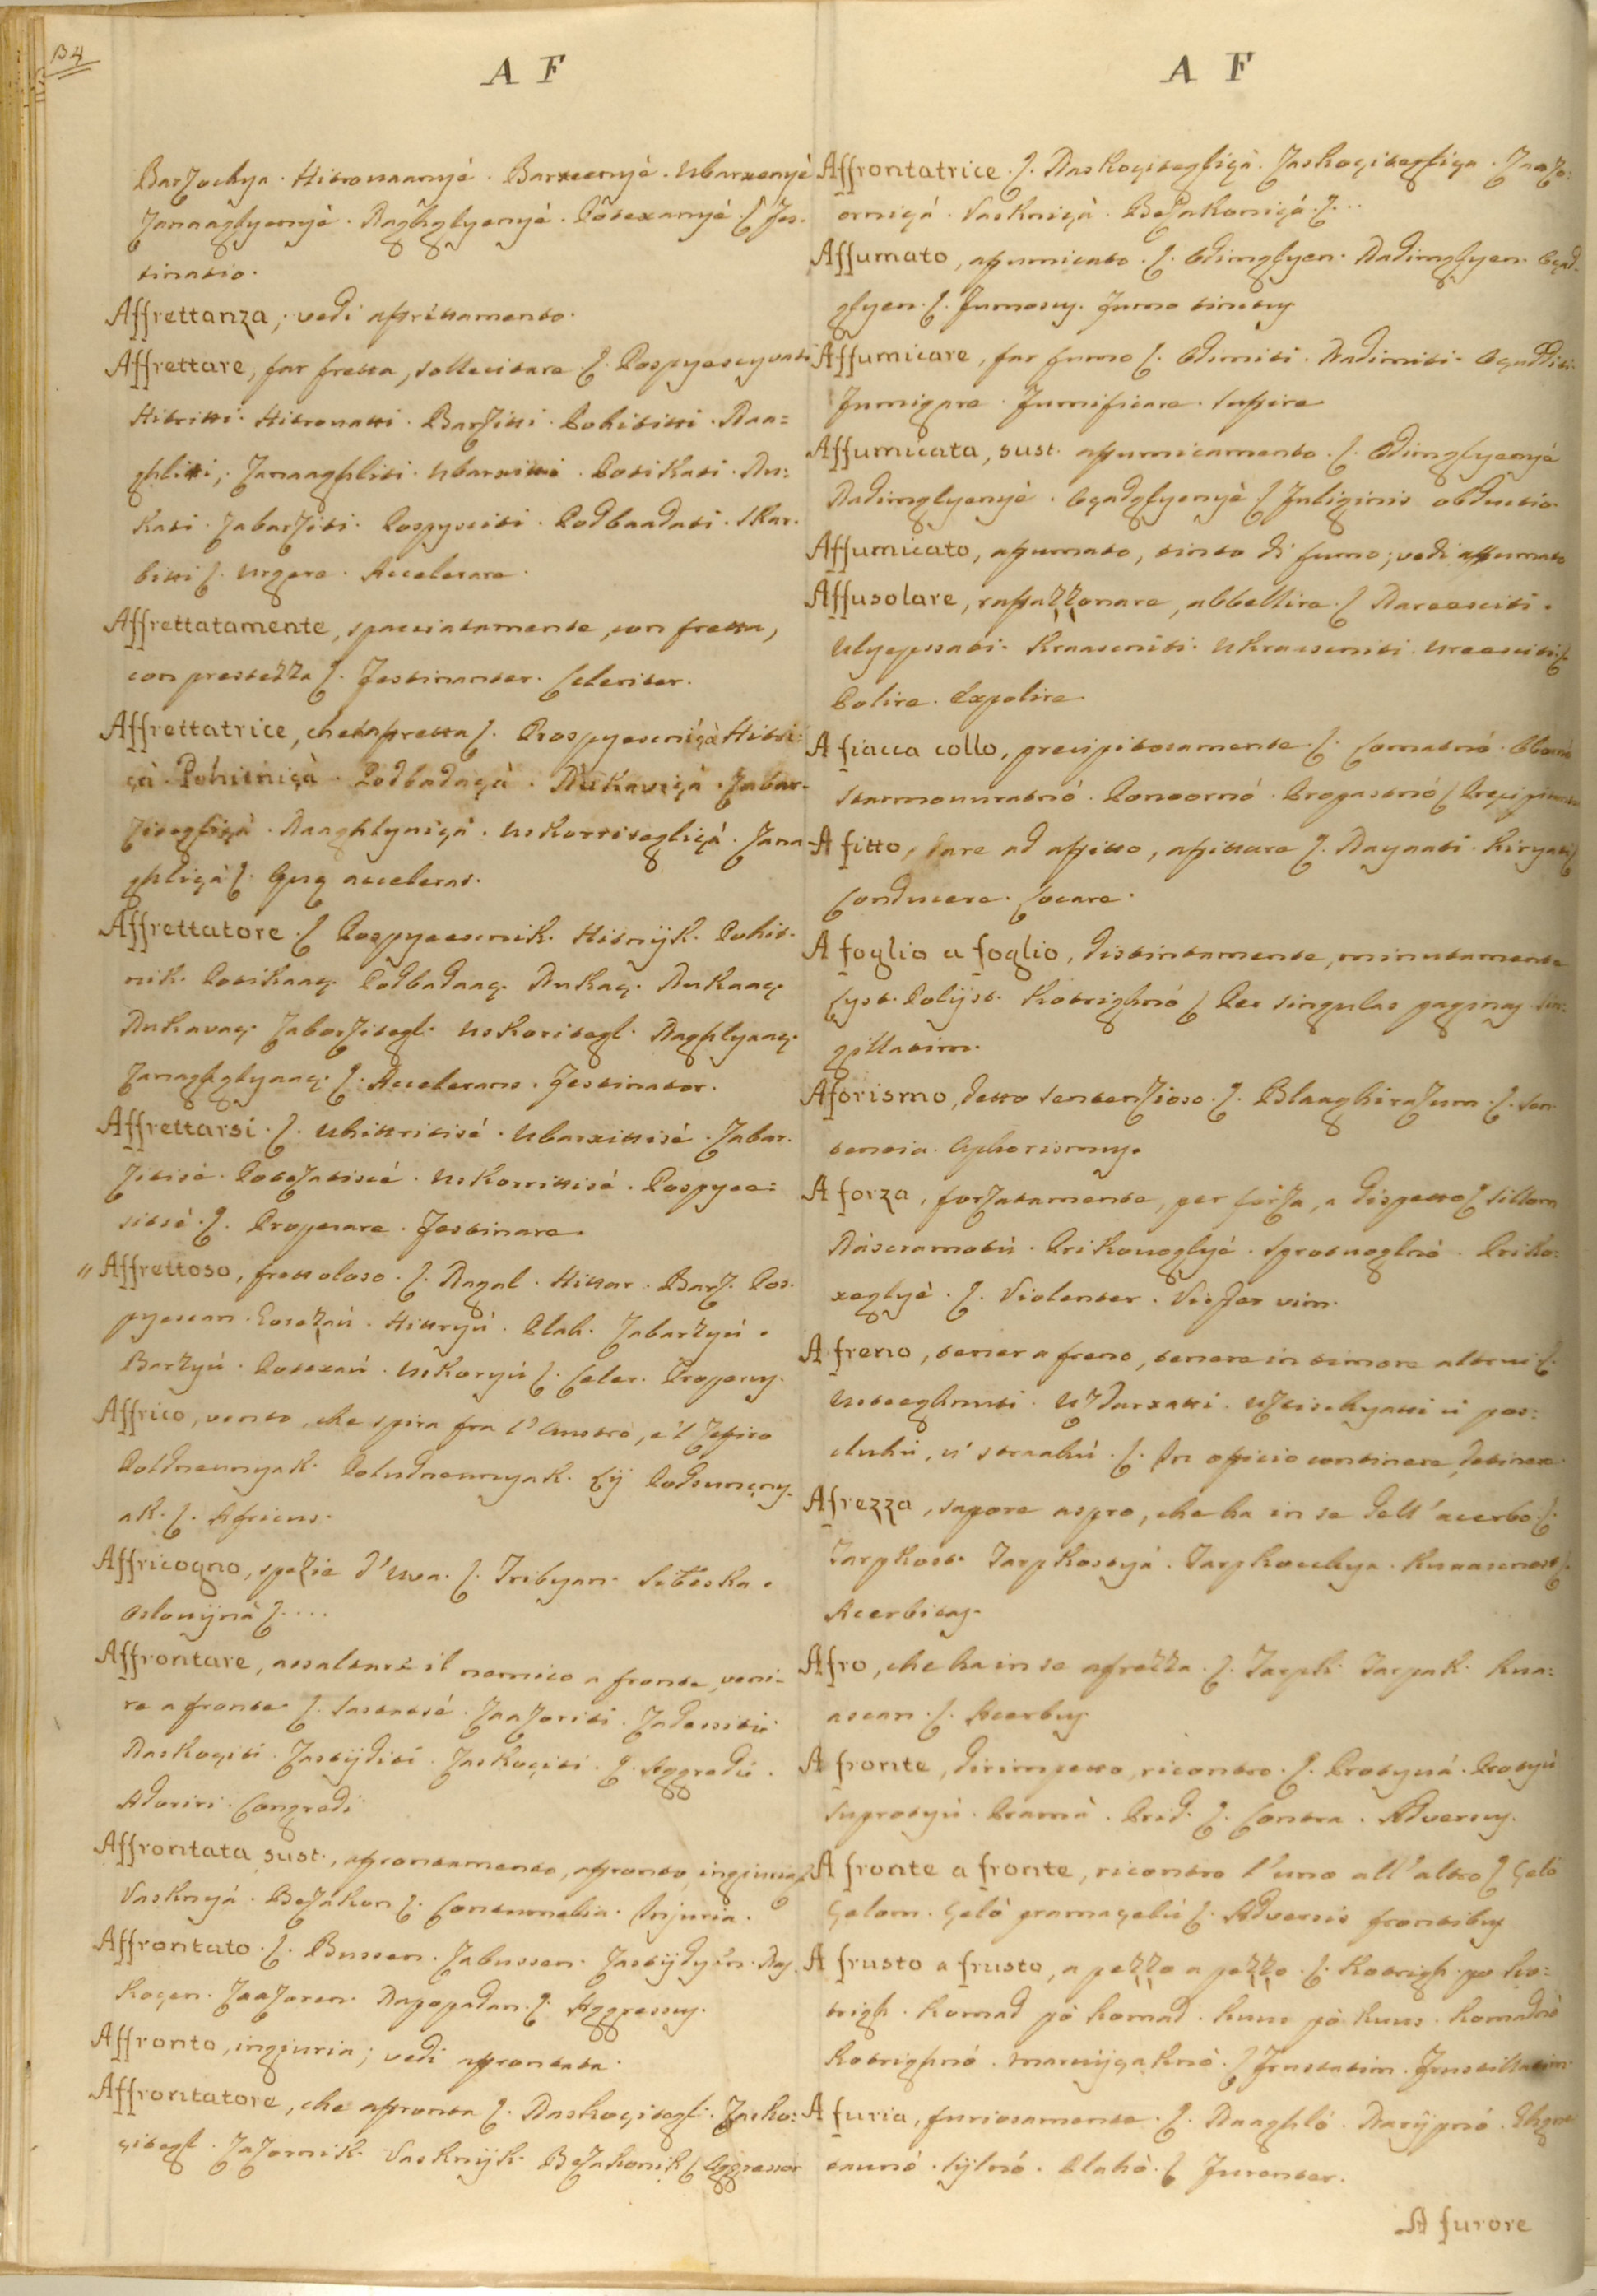 134
A F
Barzochya. Hitronaanyé. Barxeenyé. Ubarxenyé
Zanaaglyenyè. Raghglyenyè. Potexanyé. ſ. Fes-
tinatio.
Affrettanza, vedi affrettamento.
Affrettare, far fretta, sollecitare ſ. Pospyescyvati
Hitritti. Hitronatti. Barzitti. Pohititti. Raa=
ghlitti, Zanaaghliti. Ubarxitti. Potikati. Ru:
kati. Zabarziti. Pospysciti. Podbaadati. Skar-
bitti ſ. Urgere. Accelerare.
Affrettatamente, spacciatamente, con fretta,
con prestezza ſ. Festinanter. Celeriter.
Affrettatrice, che affretta ſ. Pospyescniçà Hitri:
çà. Pohitniçà. Podbadaçà. Rukaviçà. Zabar-
zitegliçà. Raaghlyniçà. Uskorritegliçà. Zana-
ghliçà ſ. Quę accelerat.
Affrettatore. ſ. Pospyeescnik. Hitnÿk. Pohit-
nik. Potikaaç. Podbadaaç. Rukaç. Rukaaç.
Rukavaç. Zabarzitegl. Uskoritegl. Raghlyaaç.
Zanaghglyaaç. ſ. Accelerans. Festinator.
Affrettarsi. ſ. Uhittritisé. Ubarxittisé. Zabar-
zitisé. Potezatisé. Uskorrittisé. Pospyee=
sitsé. ſ. Properare. Festinare.
" Affrettoso, frettoloso. ſ. Nagal. Hittar. Barz. Pos-
pyescan. Hittryú. Plah. Zabarzyú.
Barzyú. Potexaú. Uskoryú ſ. Celer. Properus.
Affrico, vento, che spira fra l'Austro, e'l Zefiro
Poldneunyak. Poludneunyak. Lÿ Podsuncny-
ak. ſ. Africus.
Affricogno, spezie d'Uva. ſ. Tribyan. Siteska.
Oslouÿnà ſ. ....
Affrontare, assaltare il nemico a fronte, veni-
re a fronte ſ. Sastatsé. Zaazoriti. Zadessitió
Naskoçiti. Zastÿditi. Zaskoçiti. ſ. Aggredi.
Adoriri. Congredi
Affrontata sust., affrontamento, affronto, ingiuria ſ
Vasknyá. Bezakon ſ. Contumelia. Injuria.
Affrontato. ſ. Bussen. Zabussen. Zastÿdyén. Nas-
koçen. Zaazoren. Napopadan. ſ. Aggressus.
Affronto, ingiuria; vedi affrontata.
Affrontatore, che affronta ſ. Naskoçitegl. Zasko:
çitegl. Zazornik. Vasknÿk. Bezakonik ſ Aggressor
A F
Affrontatrice. ſ. Naskoçitegliçà. Zaskoçitegliça. Zaazo:
orniçá. Vaskniçà. Bezakoniçà. ſ. ...
Affumato, affumicato. ſ. Odimglyen. Nadimglyen. Oçad-
glyen. ſ. Fumosus. Fumo tinctus
Affumicare, far fumo ſ. Odimiti. Nadimiti. Oçadditi.
Fumigare. Fumificare. Suffire
Affumicata, sust. affumicamento. ſ. Odimglyenyé
Nadimglyenyé. Oçadglyenyè ſ Fuliginis obductio.
Affumicato, affumato, tinto di fumo; vedi affumato
Affusolare, raffazzonare, abbellire. ſ Nareesciti.
Ulyepssati. Kraasniti. Ukraasniti. Ureesciti ſ.
Polire. Expolire.
A fiacca collo, precipitosamente. ſ. Comatnó. Oboornó
Starmouuratnó. Ponoornó. Propastnó ſ
A fitto, dare ad affitto, affittare ſ. Nayaati. Kiryati ſ
Conducere. Locare.
A foglio a foglio, distintamente, minutamente
Lyst. Polÿst. Kotrighnó ſ Per singulas paginas. Sin:
gillatim.
Aforismo, detto sentenzioso. ſ. Blaaghirazum. ſ. Sen-
tentia. Aphorismus.
A forza, forzatamente, per forza, a dispetto ſ Sillom
Náscramotú. Prikouoglyé. Sprotuoglnò. Priko:
xeglyè. ſ. Violenter. Vi. Per vim.
A freno, tener a freno, tenere in timore altrui ſ.
Usteeghnuti. Uzdarxatti. Uztischyatti ú pos:
cluhú, ú straahú. ſ. In officio continere, detinere.
Afrezza, sapore aspro, che ha in se dell'acerbo. ſ.
Tarpkost. Tarpkostyá. Tarpkocchya. Knaascnost ſ.
Acerbitas.
Afro, che ha in se afrezza. ſ. Tarpk. Tarpak. Kna:
ascan. ſ. Acerbus.
A fronte, dirimpetto, ricontro. ſ. Protyuá. Protyú
Suprotyú. Pramà. Prid. ſ. Contra. Adversus.
A fronte a fronte, ricontro l'uno all'altro ſ Çeló
Çelom. Çelò pramaçelú ſ. Adversis frontibus
A frusto a frusto, a pezzo a pezzo. ſ. Kotrigh. po ko:
trigh. Komad pò komad. Kuus pò kuus. Komadnò
Kotrighnó. Marvÿçaknò. ſ Frustatim. Frustillatim.
A furia, furiosamente. ſ. Naaghló. Narÿpnó.
taunò. Sÿlnó. Plahò. ſ Furenter.
A furore